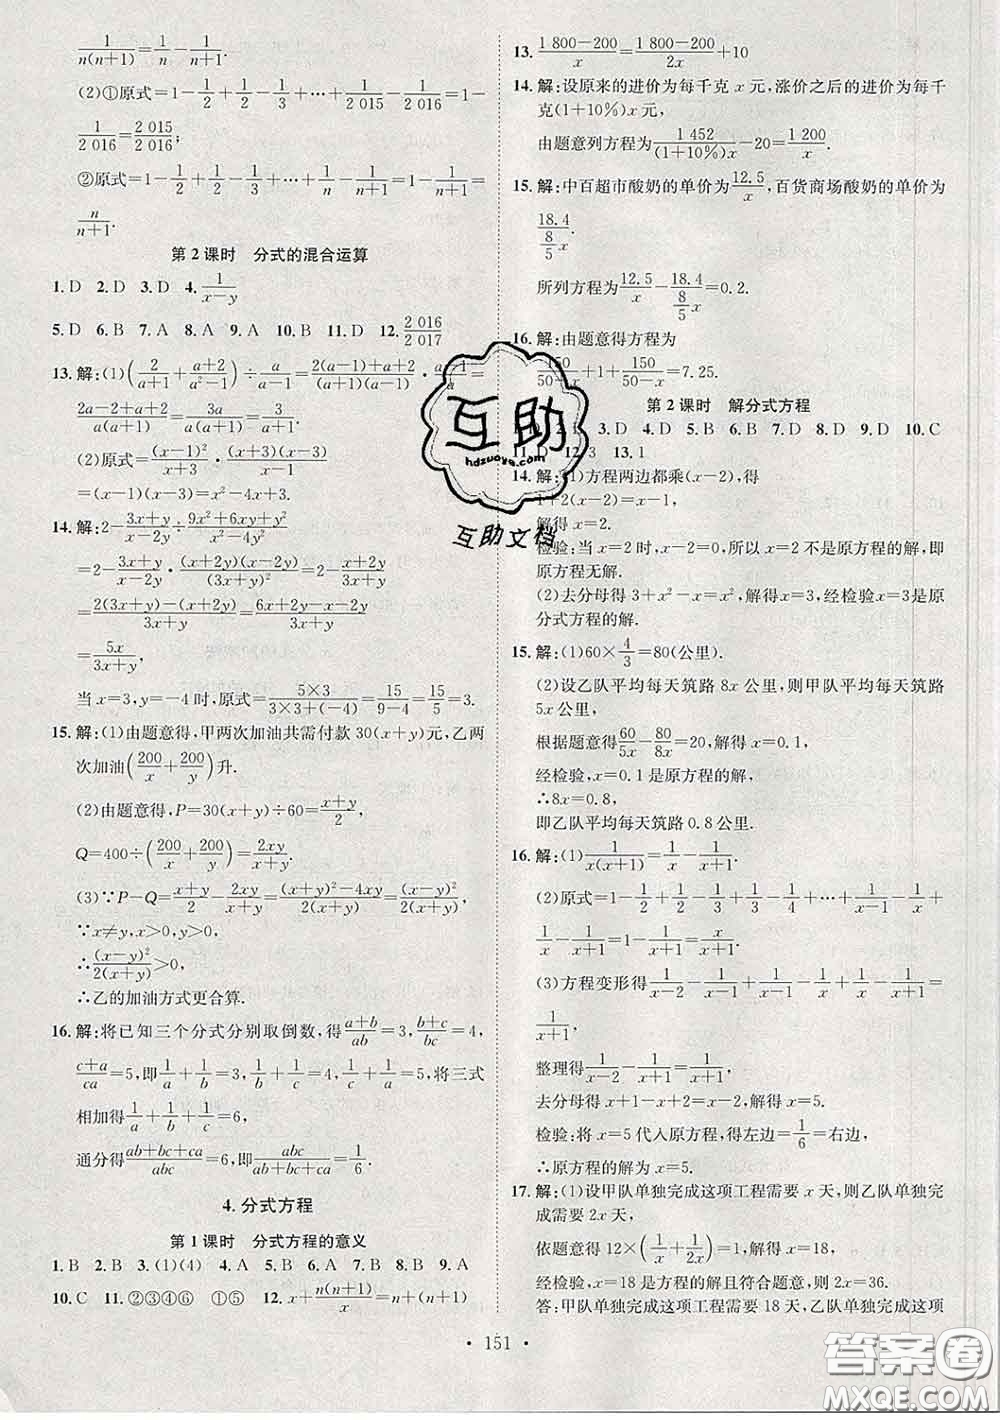 1/n(n+1)=1/n-1/(n+1).
(2)①原式=1-1/2+1/2-1/3+…+1/2 015-1/2 016=1-
1/2 016=2 015/2 016;
②原式=1-1/2+1/2-1/3+…+1/n-1/(n+1)=1-1/(n+1)=
n/(n+1).
第2课时 分式的混合运算
1.D 2.D 3.D 4.1/(x-y)
5.D 6.B 7.A 8.A 9.A 10.B 11.D 12.2 016/2 017
13.解:(1)(2/(a+1)+(a+2)/(a²-1))÷a/(a-1)=(2(a-1)+(a+2))/((a+1)(a-1))·
(2a-2+a+2)/a(a+1)=3a/a(a+1)=3/(a+1).
(2)原式=(x-1)²/(x+3)·(x+3)(x-3)/(x-1)
=(x-1)(x-3)=x²-4x+3.
14.解:2-(3x+y)/(x-2y)÷(9x²+6xy+y²)/(x²-4y²)
=2-(3x+y)/(x-2y)·(x+2y)(x-2y)/(3x+y)²=2-(x+2y)/(3x+y)
=(2(3x+y)-(x+2y))/(3x+y)=(6x+2y-x-2y)/(3x+y)
=5x/(3x+y),
当x=3,y=-4时,原式=5×3/(3×3+(-4))=15/(9-4)=15/5=3.
15.解:(1)由题意得,甲两次加油共需付款30(x+y)元,乙两
次加油(200/x+200/y)升.
(2)由题意得,P=30(x+y)÷60=(x+y)/2,
Q=400÷(200/x+200/y)=2xy/(x+y).
(3)∵P-Q=(x+y)/2-2xy/(x+y)=((x+y)²-4xy)/2(x+y)=(x-y)²/2(x+y),
∵x≠y,x>0,y>0,
∴(x-y)²/2(x+y)>0,
∴乙的加油方式更合算.
16.解:将已知三个分式分别取倒数,得(a+b)/ab=3,(b+c)/bc=4,
(c+a)/ca=5,即1/a+1/b=3,1/b+1/c=4,1/c+1/a=5,将三式
相加得1/a+1/b+1/c=6,
通分得(ab+bc+ca)/abc=6,即abc/(ab+bc+ca)=1/6.
4.分式方程
第1课时 分式方程的意义
1.B 2.B 3.(1)(4) 4.A 5.A 6.A 7.B 8.B 9.A
10.C 11.②③④⑥ ①⑤ 12.x+n(n+1)/x=n+(n+1)
13.(1 800-200)/x=(1 800-200)/2x+10
14.解:设原来的进价为每千克x元,涨价之后的进价为每千
克(1+10%)x元,
由题意列方程为1 452/(1+10%)x-20=1 200/x.
15.解:中百超市酸奶的单价为12.5/x,百货商场酸奶的单价为
18.4/(8/5)x.
所列方程为12.5/x-18.4/(8/5)x=0.2.
16.解:由题意得方程为
150/(50-x)+1+150/(50-x)=7.25.
第2课时 解分式方程
3.D 4.D 5.B 6.B 7.D 8.D 9.D 10.C
11.D 12.3 13.1
14.解:(1)方程两边都乘(x-2),得
1+2(x-2)=x-1,
解得x=2.
检验:当x=2时,x-2=0,所以x=2不是原方程的解,即
原方程无解.
(2)去分母得3+x²-x=x²,解得x=3,经检验x=3是原
分式方程的解.
15.解:(1)60×4/3=80(公里).
(2)设乙队平均每天筑路8x公里,则甲队平均每天筑路
5x公里,
根据题意得60/5x-80/8x=20,解得x=0.1,
经检验,x=0.1是原方程的解,
∴8x=0.8,
即乙队平均每天筑路0.8公里.
16.解:(1)1/x(x+1)=1/x-1/(x+1).
(2)原式=1-1/2+1/2-1/3+1/3-1/4+…+1/(x-1)-1/x+
1/x-1/(x+1)=1-1/(x+1)=x/(x+1).
(3)方程变形得1/(x-2)-1/(x-1)+1/(x-1)-1/x+1/x-1/(x+1)=
1/(x+1),
整理得1/(x-2)-1/(x+1)=1/(x+1),
去分母得x+1-x+2=x-2,解得x=5.
检验:将x=5代入原方程,得左边=1/6=右边,
∴原方程的解为x=5.
17.解:(1)设甲队单独完成这项工程需要x天,则乙队单独完
成需要2x天,
依题意得12×(1/x+1/2x)=1,解得x=18,
经检验,x=18是方程的解且符合题意,则2x=36.
答:甲队单独完成这项工程需要18天,乙队单独完成这项
· 151 ·
互助
hdzuoye.com
互助文档
答案圈
MXQE.COM